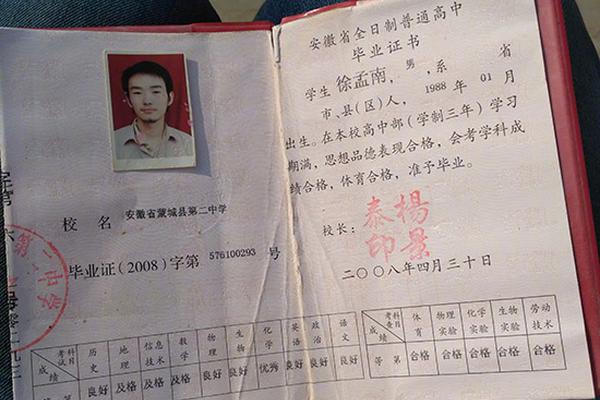 校名 安徽省蒙城县第二中学
毕业证(2008)字第 576100293 号
考试科目 历史 地理 信息技术 数学 物理 生物 化学 英语 政治 语文
成绩 良好 及格 及格 及格 良好 良好 优秀 良好 良好 良好
安徽省全日制普通高中
毕业证书
学生 徐孟南,男,系 省
市、县(区)人,1988年01月
出生。在本校高中部(学制三年)学习
期满,思想品德表现合格,会考学科成
绩合格,体育合格,准予毕业。
校长:
泰楊
印景
二〇〇八年四月三十日
考查科目 体育 物理实验 化学实验 生物实验 劳动技术
成绩
等第 合格 合格 合格 合格 合格